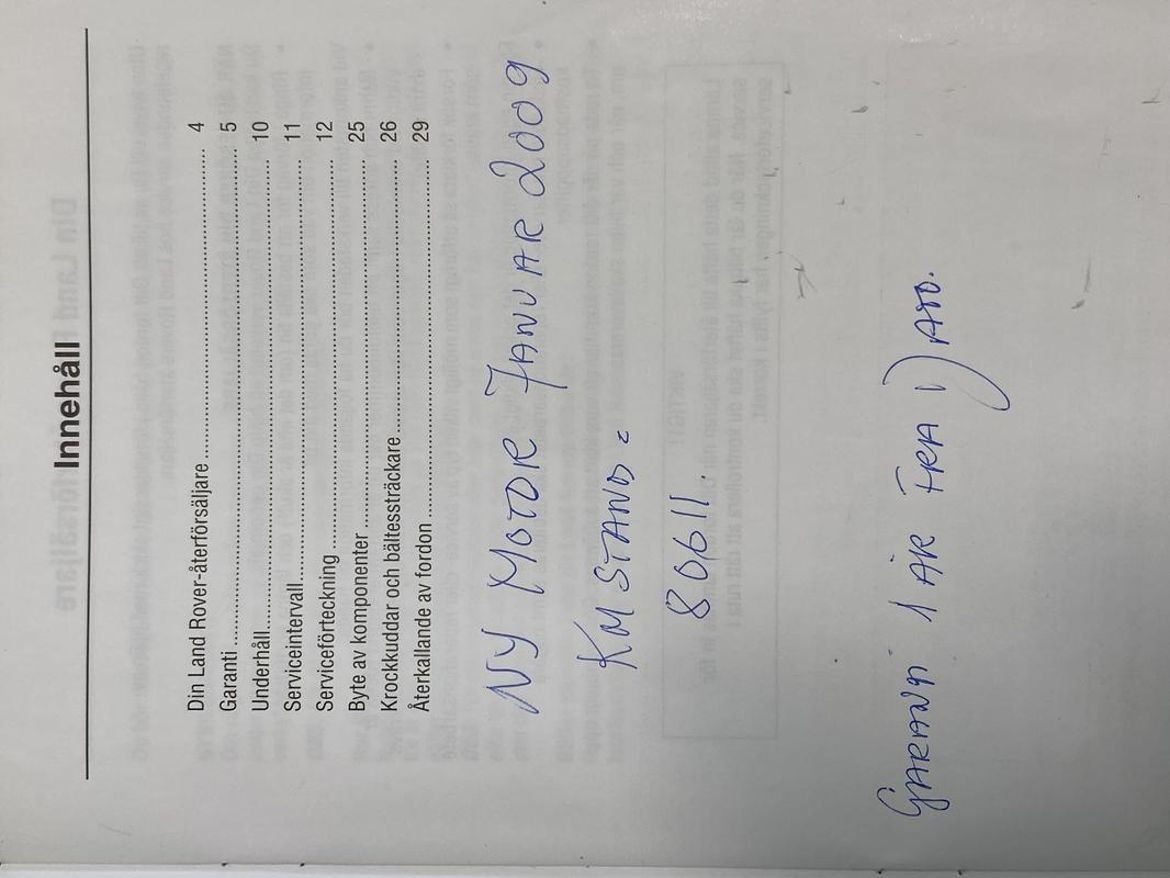 Innehåll
Din Land Rover-återförsäljare 4
Garanti 5
Underhåll 10
Serviceintervall 11
Serviceförteckning 12
Byte av komponenter 25
Krockkuddar och bältessträckare 26
Återkallande av fordon 29
NY MOTOR JANUAR 2009.
KM STAND =
80611.
GARANTI 1 ÅR FRA